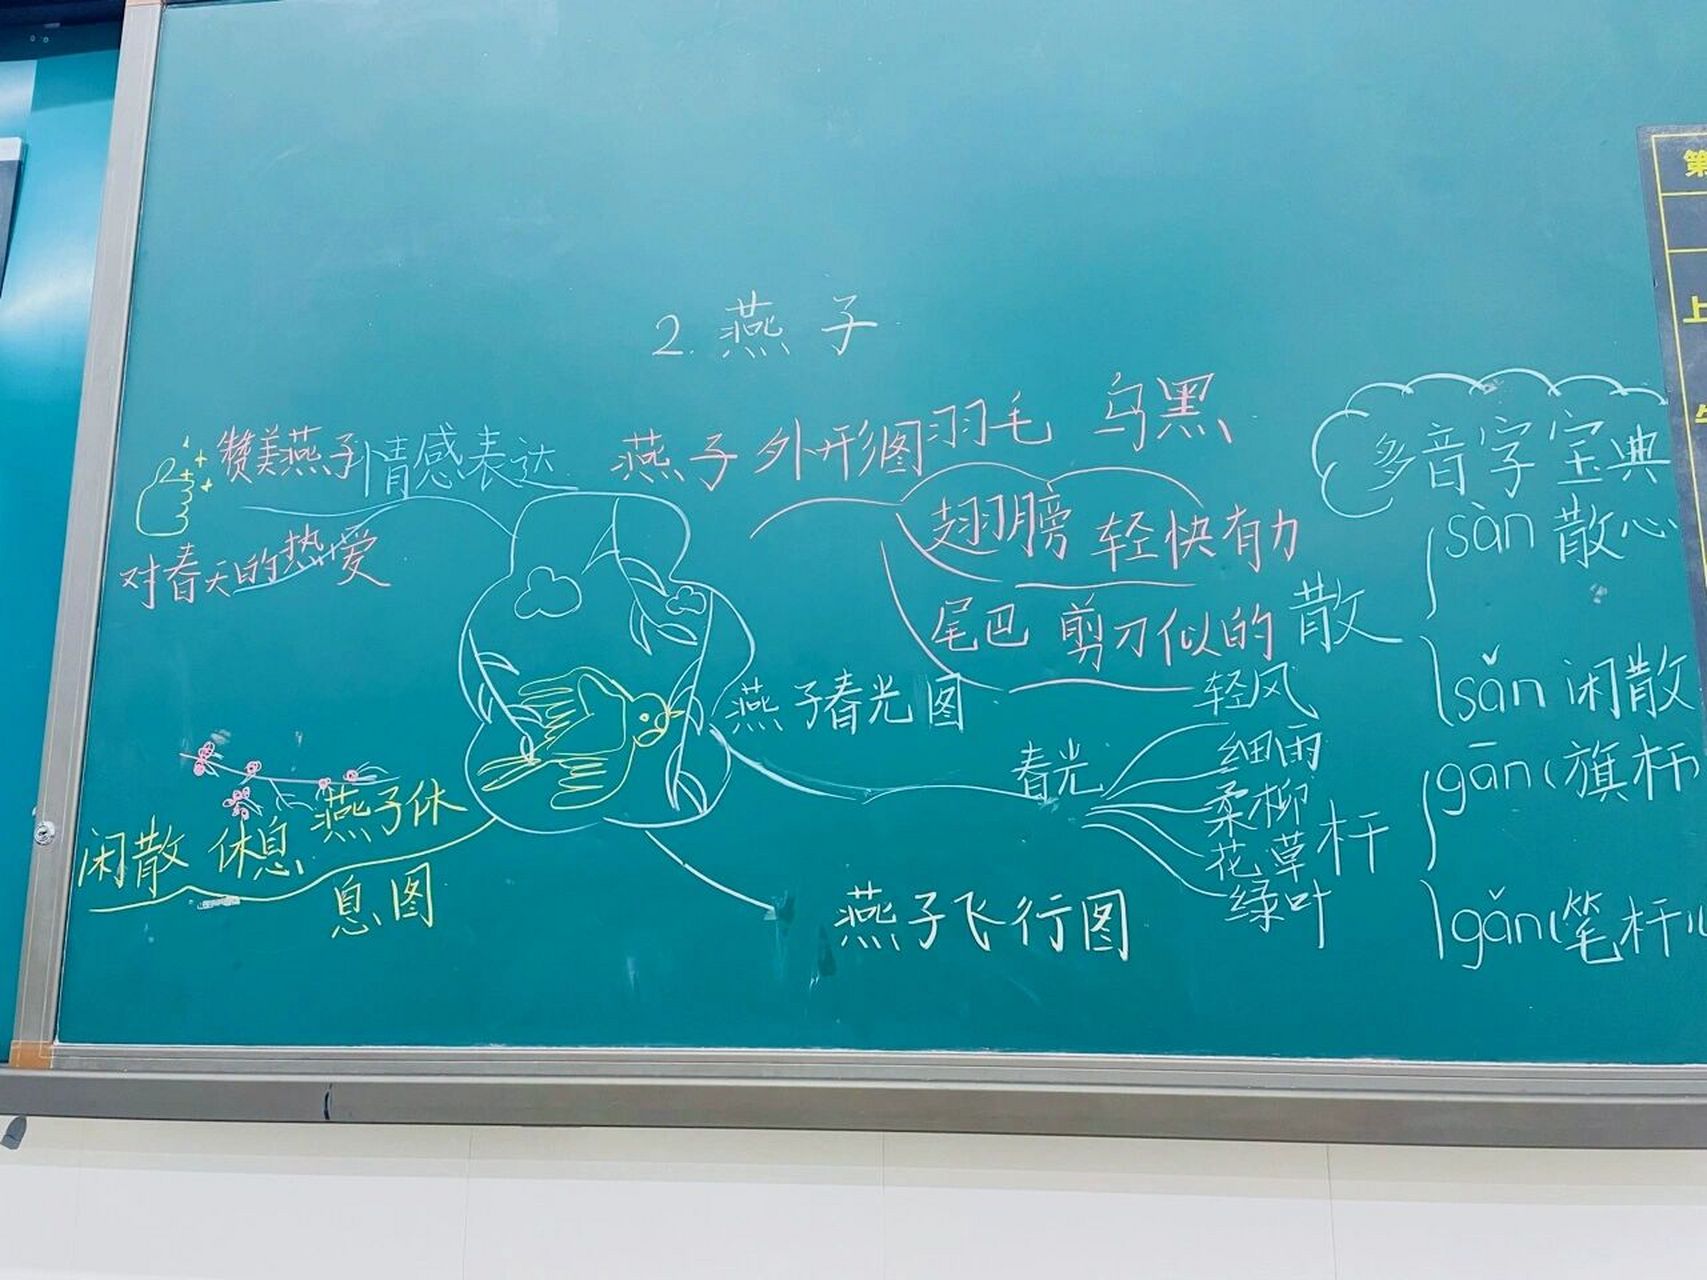 2. 燕子
赞美燕子
情感表达
对春天的热爱
燕子外形图
羽毛 乌黑
翅膀 轻快有力
尾巴 剪刀似的
燕子春光图
春光
轻风
细雨
柔柳
花草
绿叶
燕子飞行图
燕子休
息图
闲散 休息
多音字宝典
散
sàn 散心
sǎn 闲散
杆
gān(旗杆)
gǎn(笔杆儿
第
上